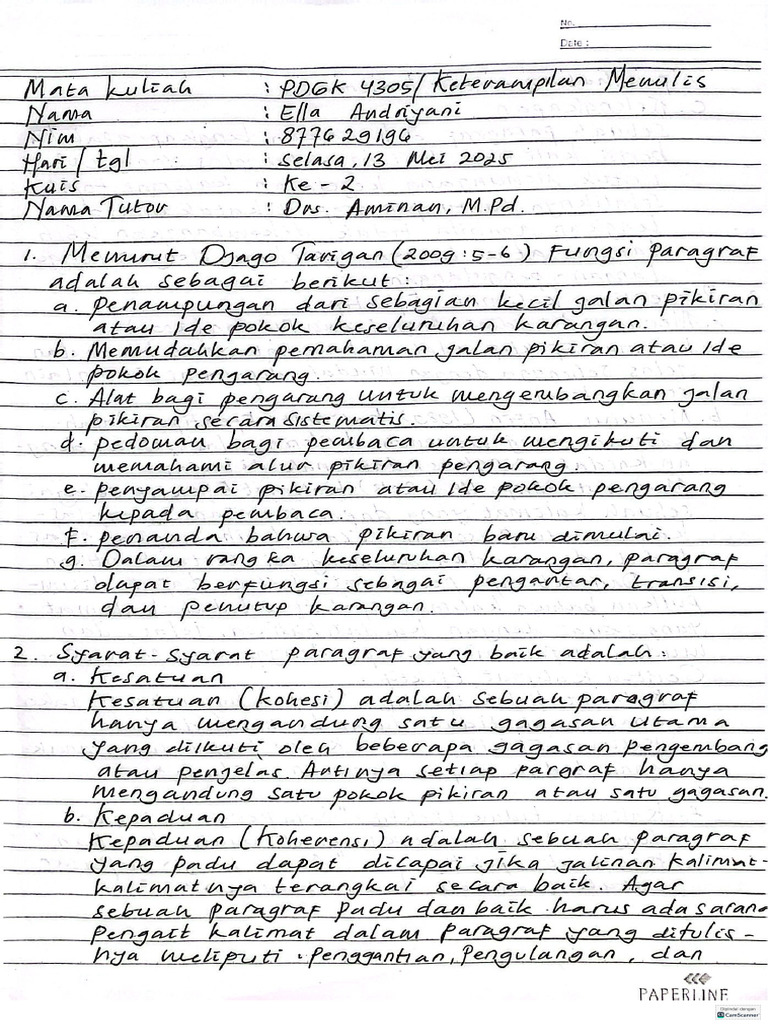 No.
Date :
Mata kuliah : PDGK 4305/Keterampilan Menulis
Nama : Ella Andriyani
Nim : 877629196
Hari / tgl : Selasa, 13 Mei 2025
Kuis : Ke - 2
Nama Tutor : Drs. Aminan, M.Pd.
1. Menurut Djago Tarigan (2009 : 5-6) Fungsi paragraf
adalah sebagai berikut :
a. Penampungan dari sebagian kecil jalan pikiran
atau Ide pokok keseluruhan karangan.
b. Memudahkan pemahaman jalan pikiran atau Ide
pokok pengarang.
c. Alat bagi pengarang untuk mengembangkan jalan
pikiran secara sistematis.
d. pedoman bagi pembaca untuk mengikuti dan
memahami alur pikiran pengarang.
e. penyampai pikiran atau Ide pokok pengarang
kepada pembaca.
f. penanda bahwa pikiran baru dimulai.
g. Dalam rangka keseluruhan karangan, paragraf
dapat berfungsi sebagai pengantar, transisi,
dan penutup karangan.
2. Syarat-Syarat paragraf yang baik adalah :
a. Kesatuan
Kesatuan (kohesi) adalah sebuah paragraf
hanya mengandung satu gagasan utama
yang diikuti oleh beberapa gagasan pengembang
atau penjelas. Artinya setiap pargraf hanya
mengandung satu pokok pikiran atau satu gagasan.
b. Kepaduan
Kepaduan (Koherensi) adalah sebuah paragraf
yang padu dapat dicapai jika jalinan kalimat-
kalimatnya terangkai secara baik. Agar
sebuah paragraf padu dan baik harus ada sarana
pengait kalimat dalam paragraf yang ditulis-
nya meliputi : Penggantian, Pengulangan, dan
PAPERLINE
Dipindai dengan
CamScanner